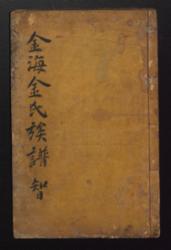 金海金氏族譜 智